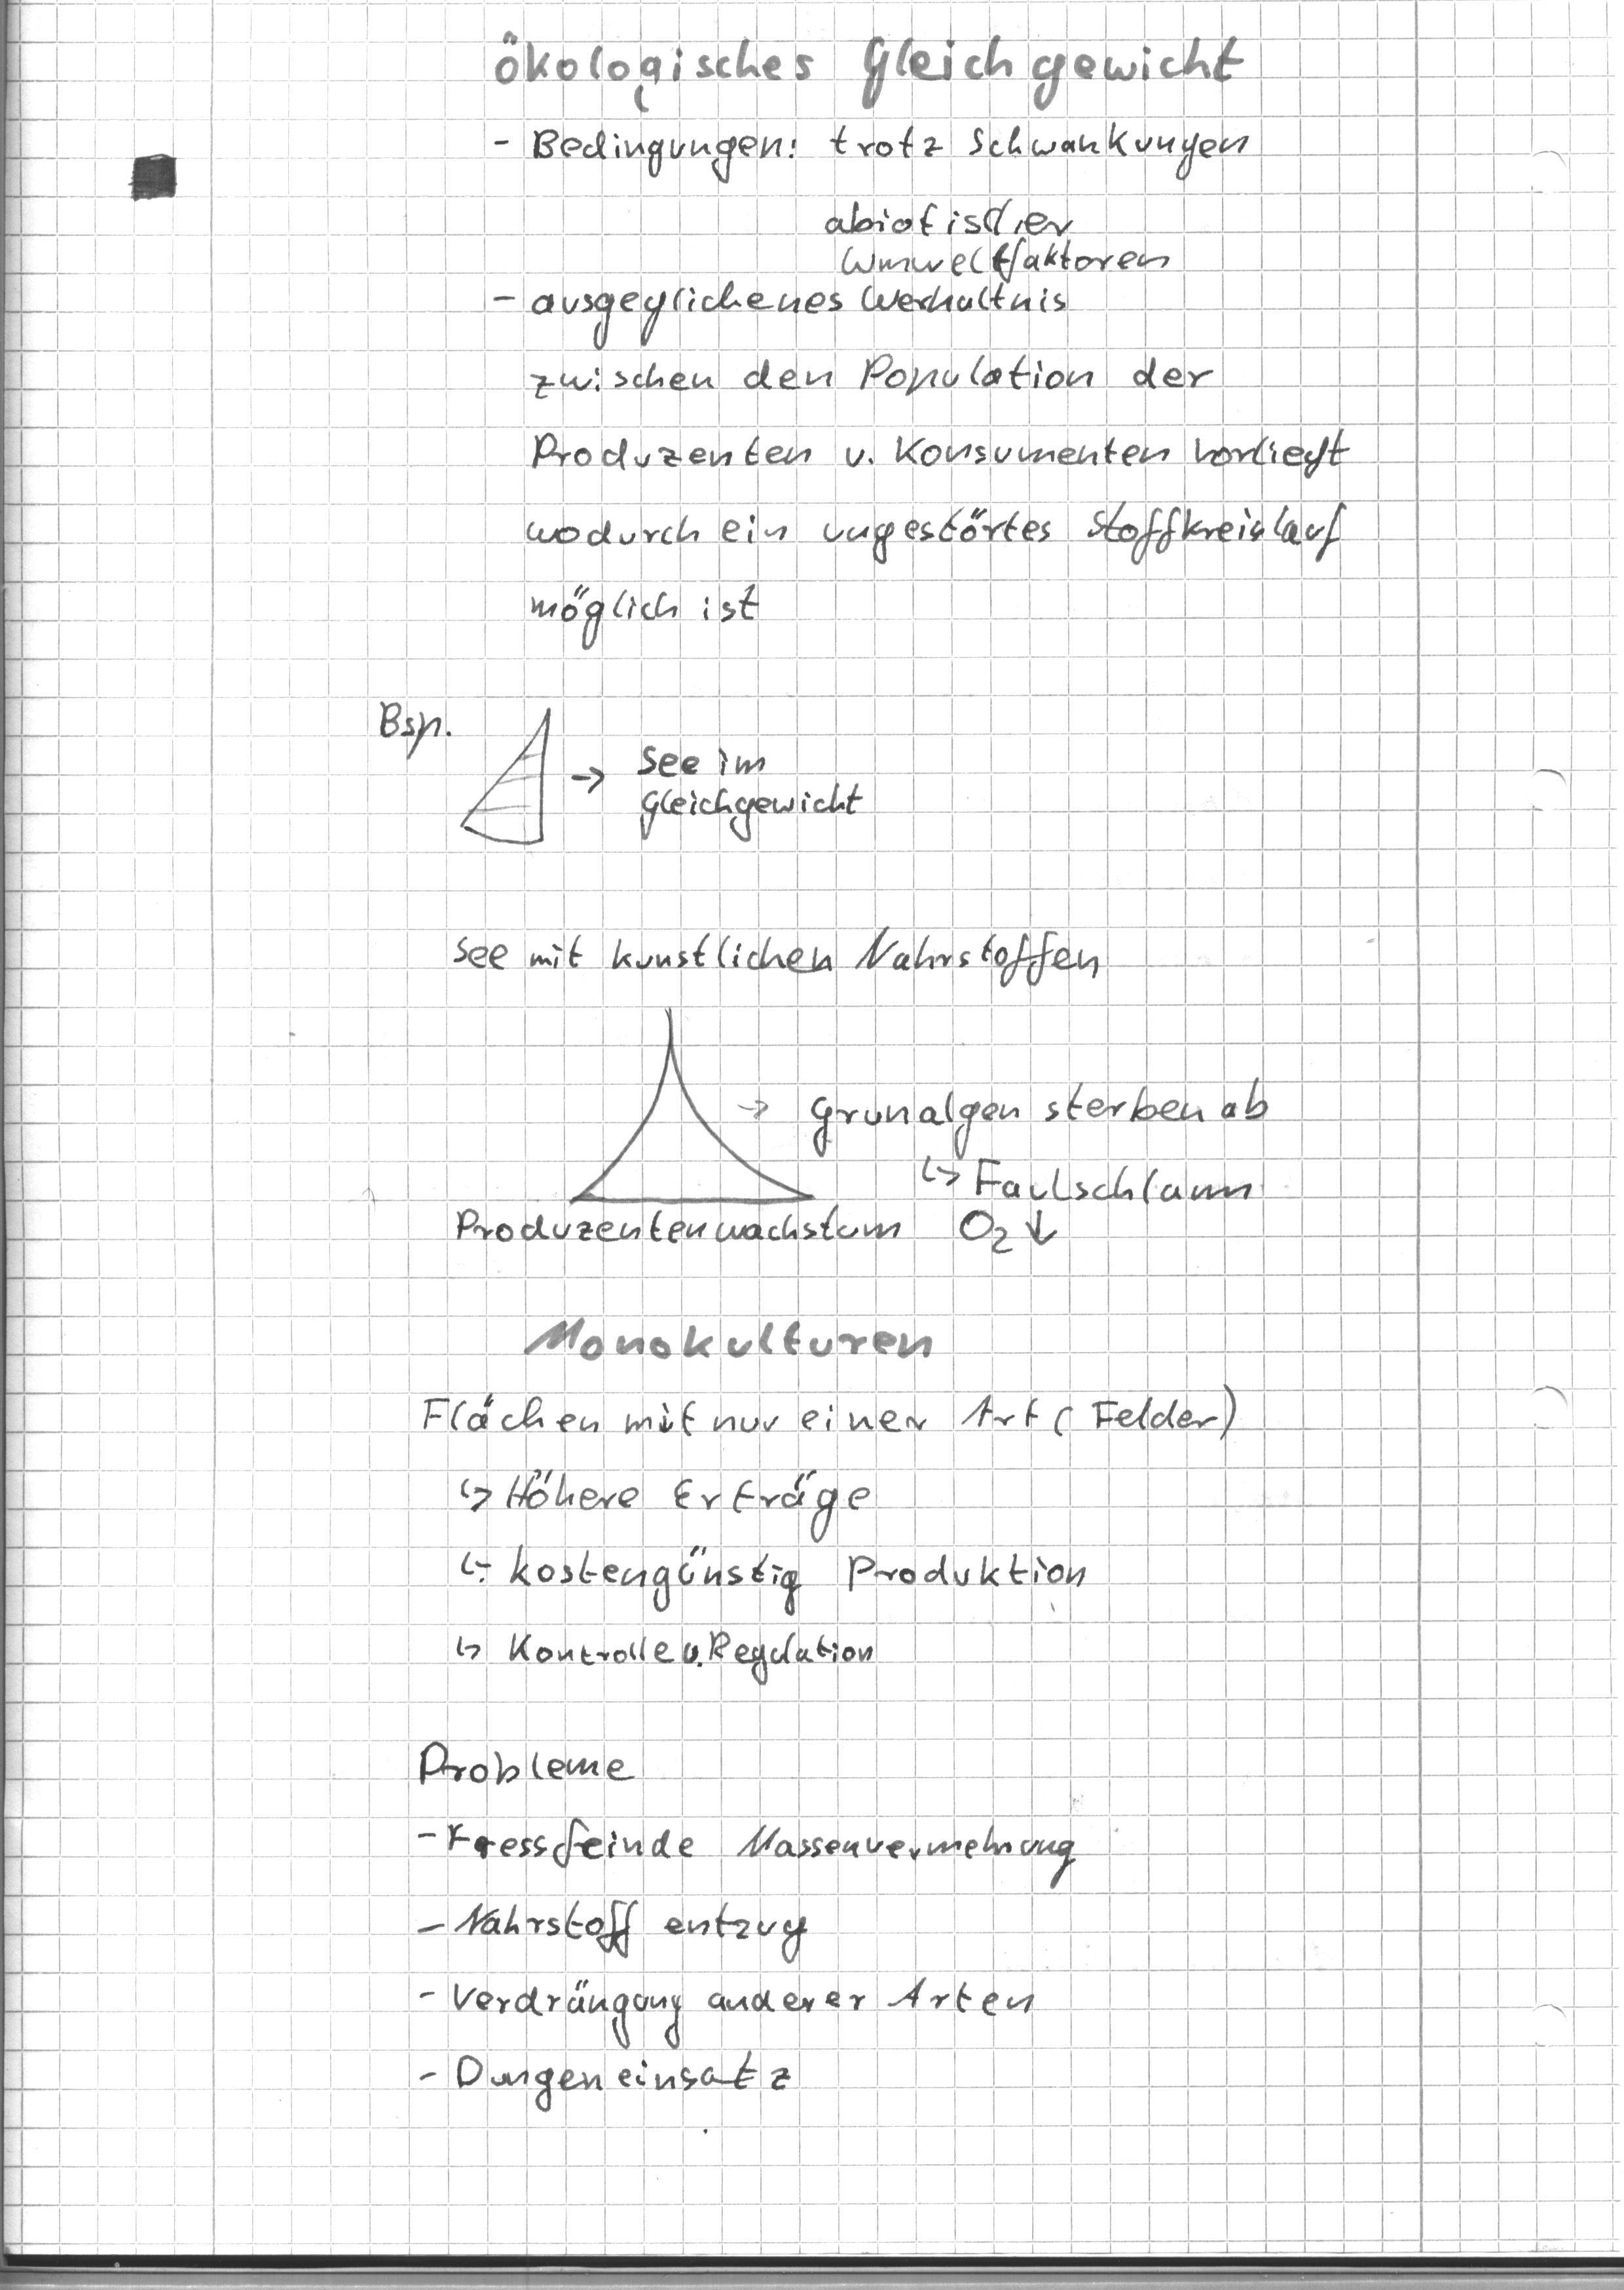 ökologisches Gleichgewicht
- Bedingungen: trotz Schwankungen
abiotischer
Umweltfaktoren
- ausgeglichenes Verhaltnis
zwischen den Population der
Produzenten u. Konsumenten vorliegt
wodurch ein ungestörtes Stoffkreislauf
möglich ist
Bsp.
→ See im
Gleichgewicht
See mit kunstlichen Nahrstoffen
→ Grunalgen sterben ab
↳ Faulschlamm
Produzentenwachstum O₂ ↓
Monokulturen
Flächen mit nur einer Art ( Felder)
↳ Höhere Erträge
↳ kostengünstig Produktion
↳ Kontrolle u. Regulation
Probleme
- Fressfeinde Massenvermehrung
- Nahrstoff entzug
- Verdrängung anderer Arten
- Dungeneinsatz